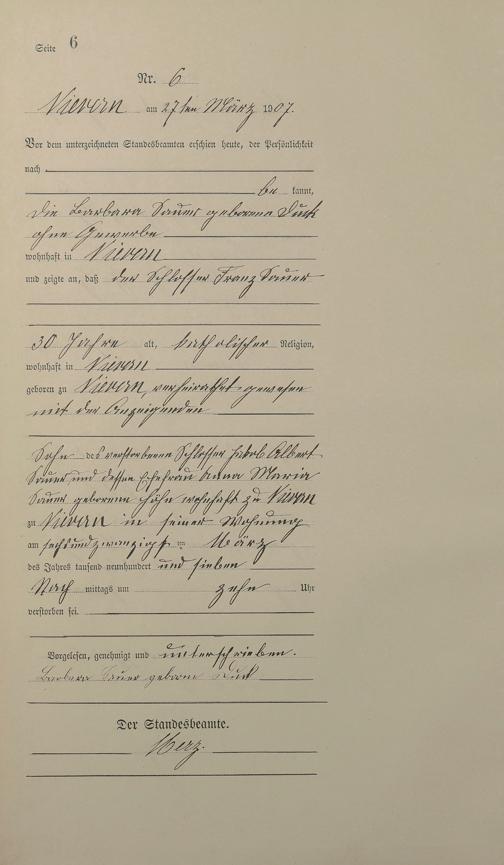 Seite 6
Nr. 6
Nievern am 27ten März 1907.
Vor dem unterzeichneten Standesbeamten erschien heute, der Persönlichkeit
nach
be kannt,
die Barbara Sauer geborene Duck
ohne Gewerbe
wohnhaft in Nievern
und zeigte an, daß der Schlosser Franz Sauer
30 Jahre alt, katholischer Religion,
wohnhaft in Nievern
geboren zu Nievern, verheirathet gewesen
mit der Anzeigenden
Sohn des verstorbenen Schlosser Jakob Albert
Sauer und dessen Ehefrau Anna Maria
Sauer geborenen wohnhaft zu Nievern
zu Nievern in seiner Wohnung
am sechsundzwanzigsten März
des Jahres tausend neunhundert und sieben
Nach mittags um zehn Uhr
verstorben sei.
Vorgelesen, genehmigt und unterschrieben.
Barbara Sauer geborne Duck
Der Standesbeamte.
Merz.